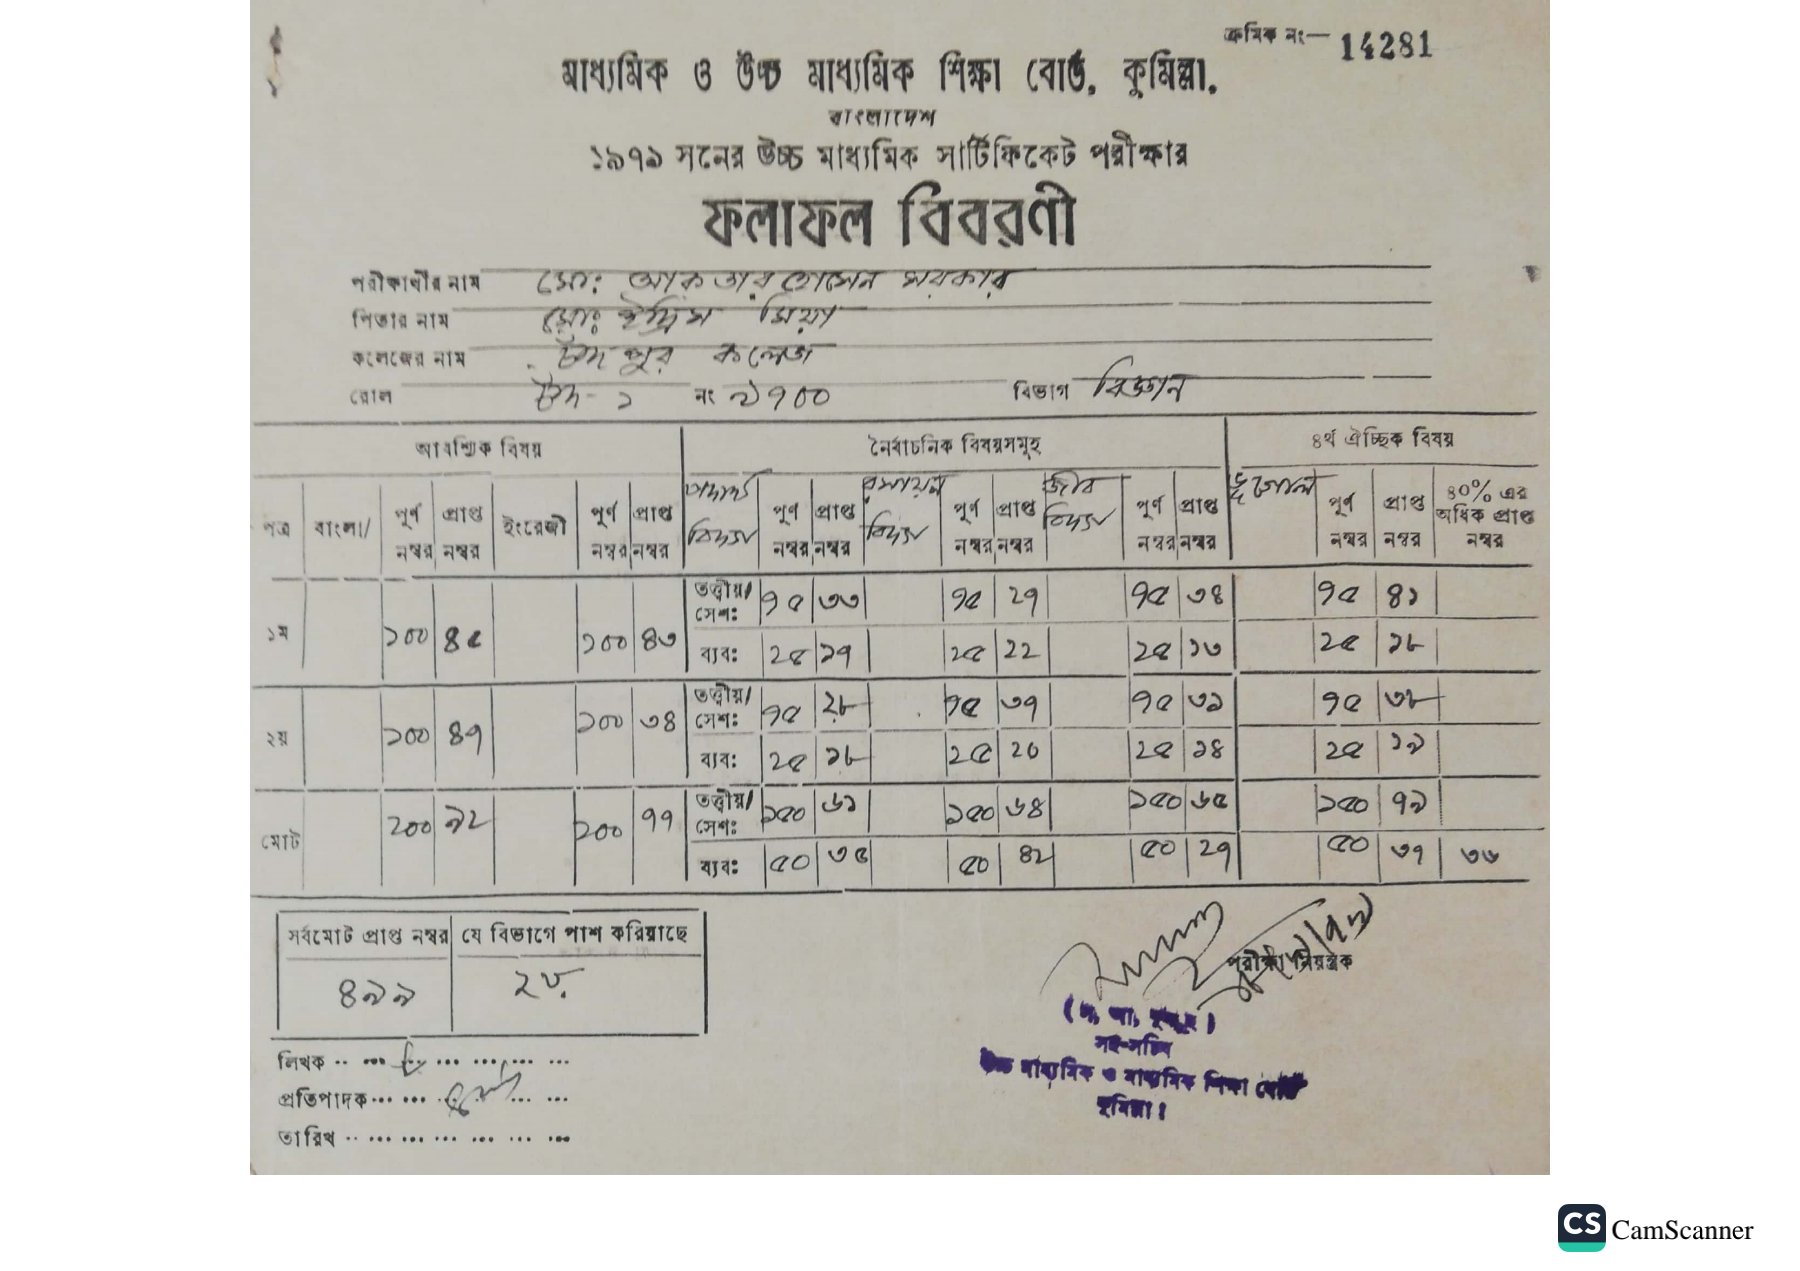 ক্রমিক নং— 14281
মাধ্যমিক ও উচ্চ মাধ্যমিক শিক্ষা বোর্ড, কুমিল্লা.
বাংলাদেশ
১৯৭৯ সনের উচ্চ মাধ্যমিক সার্টিফিকেট পরীক্ষার
ফলাফল বিবরণী
পরীক্ষার্থীর নাম মোঃ আকতার হোসেন সরকার
পিতার নাম মোঃ ইদ্রিস মিয়া
কলেজের নাম চাঁদপুর কলেজ
রোল চাঁদ- ১ নং ৯৭০০ বিভাগ বিজ্ঞান
আবশ্যিক বিষয় নৈর্বাচনিক বিষয়সমূহ ৪র্থ ঐচ্ছিক বিষয়
পত্র বাংলা/ পূর্ণ নম্বর প্রাপ্ত নম্বর ইংরেজী পূর্ণ নম্বর প্রাপ্ত নম্বর পদার্থ বিদ্যা পূর্ণ নম্বর প্রাপ্ত নম্বর রসায়ন বিদ্যা পূর্ণ নম্বর প্রাপ্ত নম্বর জীব বিদ্যা পূর্ণ নম্বর প্রাপ্ত নম্বর ভূগোল পূর্ণ নম্বর প্রাপ্ত নম্বর ৪০% এর অধিক প্রাপ্ত নম্বর
১ম ১০০ ৪৫ ১০০ ৪৩ তত্ত্বীয়/ সেশঃ ৭৫ ৩৩ ৭৫ ২৭ ৭৫ ৩৪ ৭৫ ৪১
ব্যবঃ ২৫ ১৭ ২৫ ২২ ২৫ ১৩ ২৫ ১৮
২য় ১০০ ৪৭ ১০০ ৩৪ তত্ত্বীয়/ সেশঃ ৭৫ ২৮ ৭৫ ৩৭ ৭৫ ৩১ ৭৫ ৩৮
ব্যবঃ ২৫ ১৮ ২৫ ২০ ২৫ ১৪ ২৫ ১৯
মোট ২০০ ৯২ ২০০ ৭৭ তত্ত্বীয়/ সেশঃ ১৫০ ৬১ ১৫০ ৬৪ ১৫০ ৬৫ ১৫০ ৭৯
ব্যবঃ ৫০ ৩৫ ৫০ ৪২ ৫০ ২৭ ৫০ ৩৭ ৩৬
সর্বমোট প্রাপ্ত নম্বর যে বিভাগে পাশ করিয়াছে
৪৯৯ ২য়
পরীক্ষা নিয়ন্ত্রক
সহ-সচিব
উচ্চ মাধ্যমিক ও মাধ্যমিক শিক্ষা বোর্ড
কুমিল্লা।
লিখক
প্রতিপাদক
তারিখ
CS CamScanner